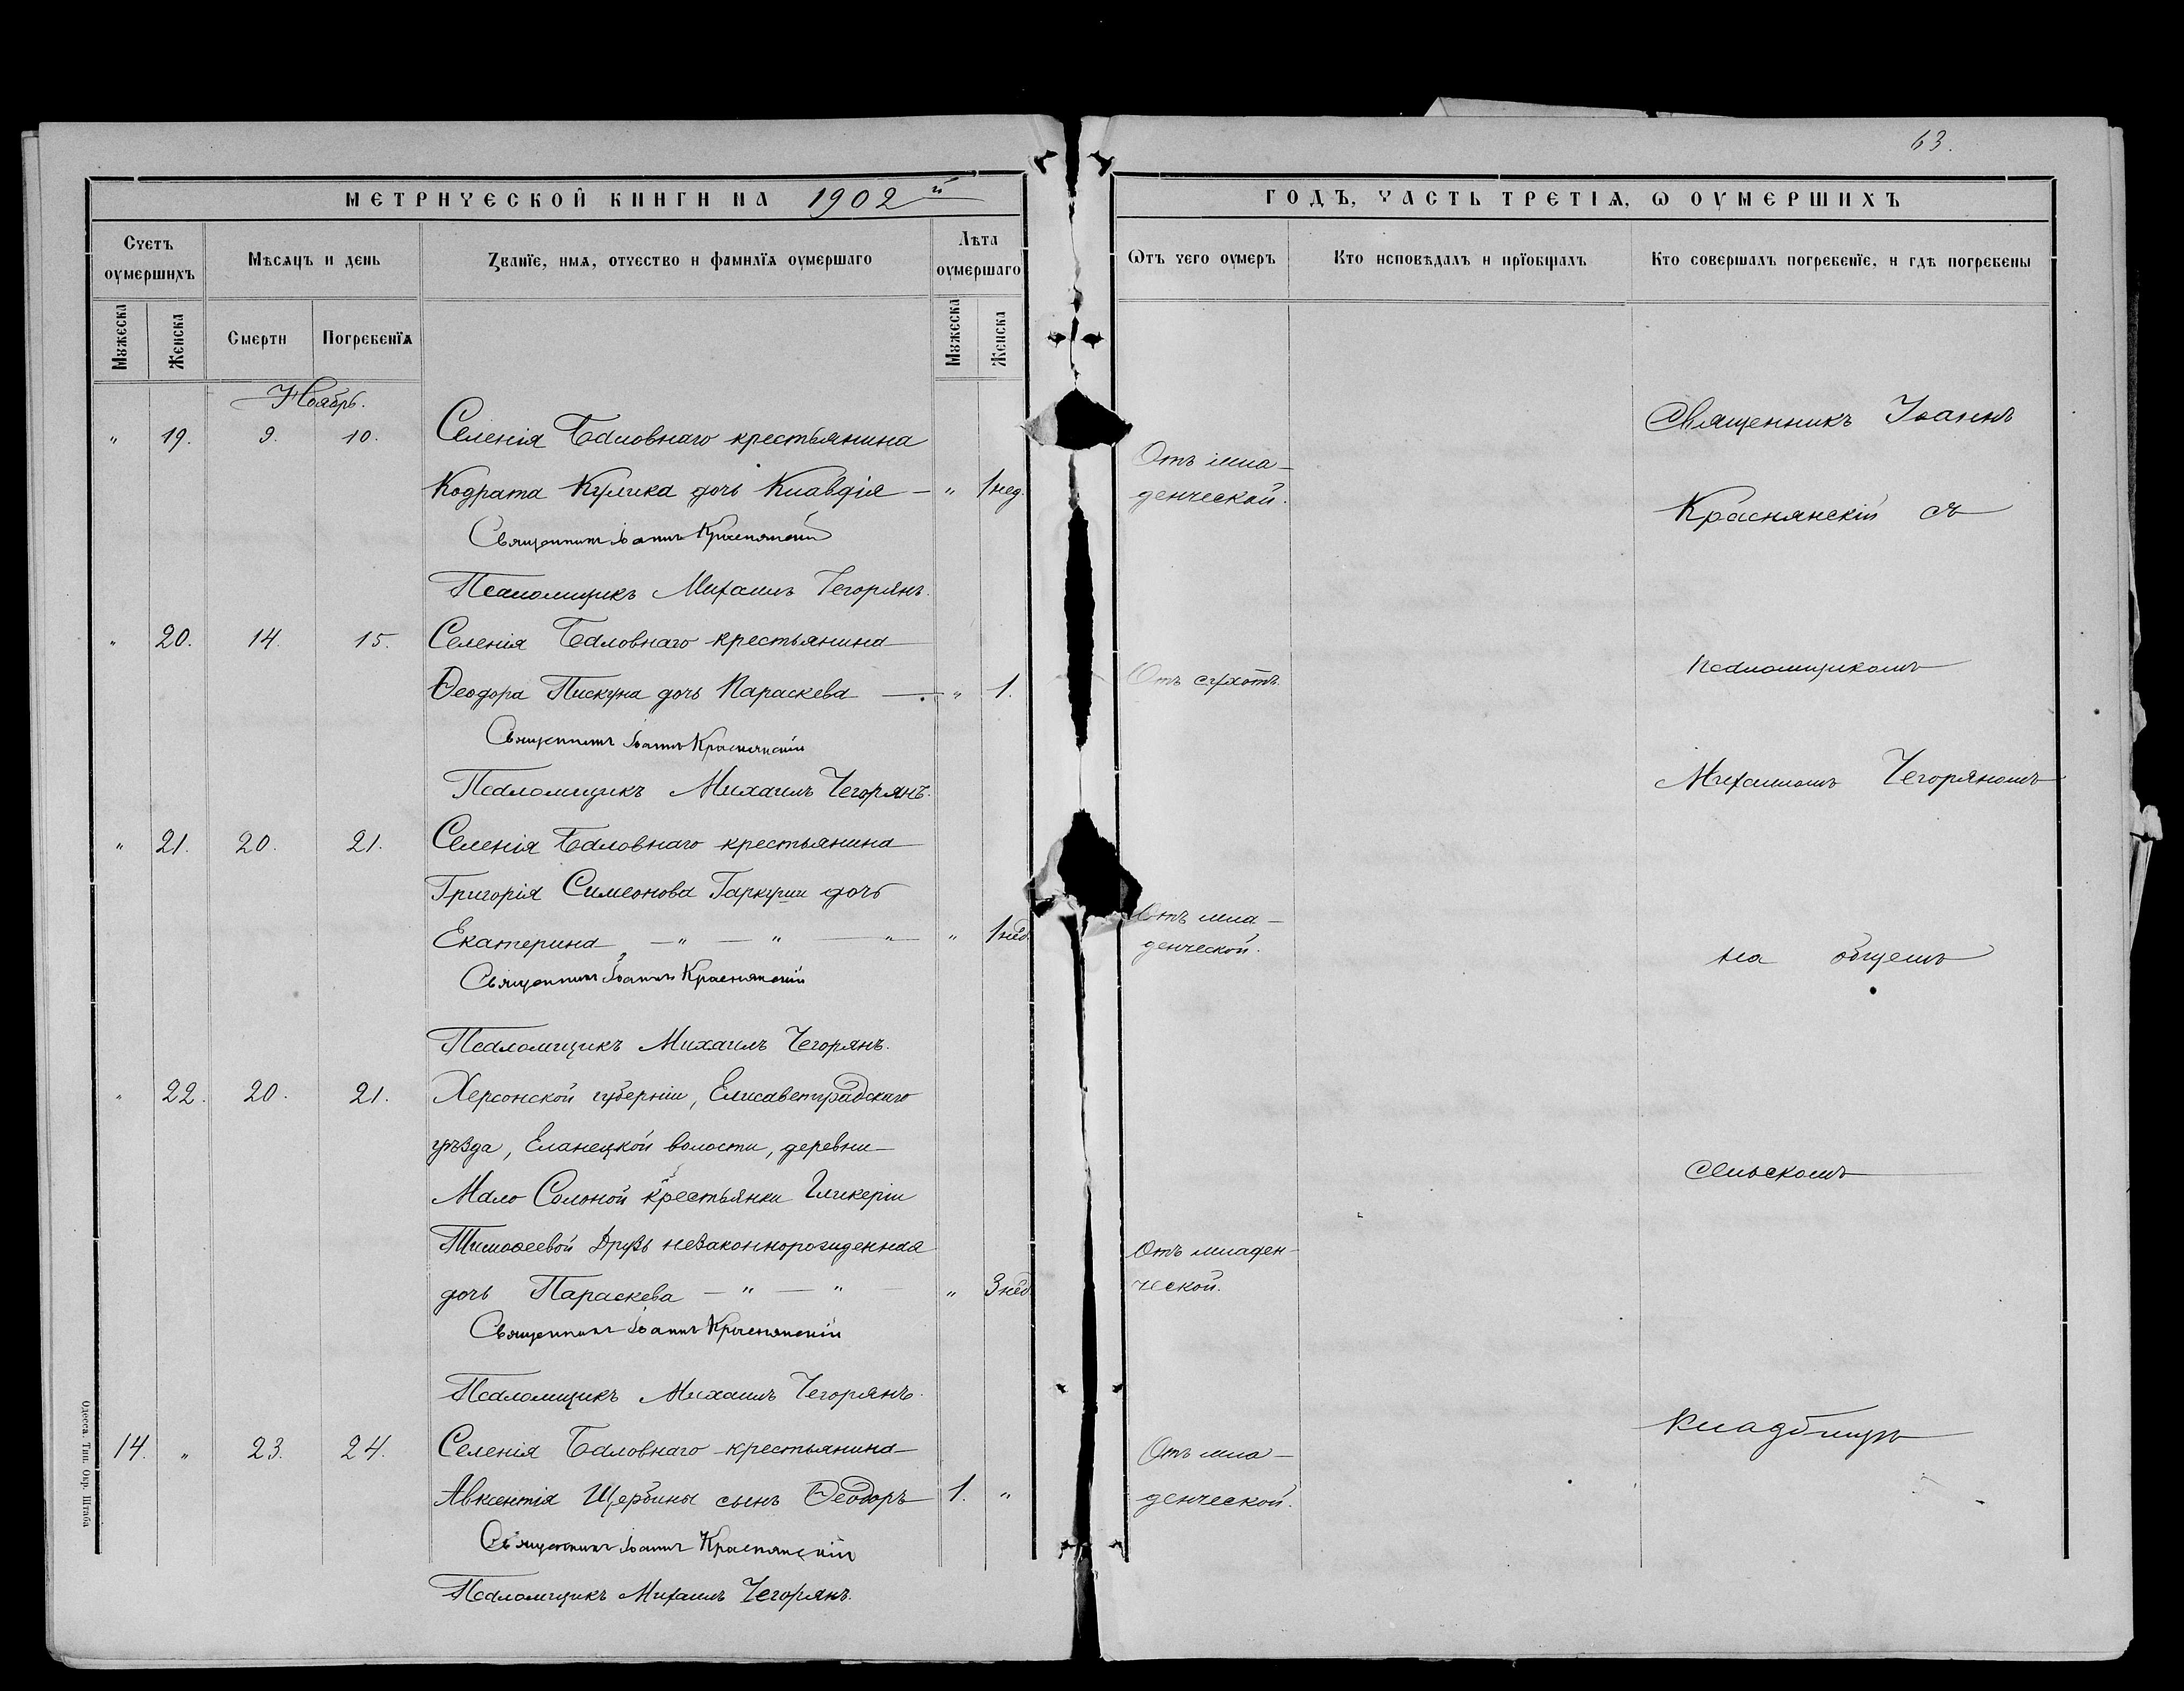 63.
МЕТРИЧЕСКОЙ КНИГИ НА 1902й
ГОДЪ, ЧАСТЬ ТРЕТІѦ, Ѡ ОУМЕРШИХЪ
Счетъ оумершихъ
Мѣсѧцъ и день
Званїе, имѧ, отчество и фамилїѧ оумершаго
Лѣта оумершаго
Ѿтъ чего оумеръ
Кто исповѣдалъ и прїобщалъ
Кто совершалъ погребенїе, и гдѣ погребены
Мꙋжеска
Женска
Смерти
Погребенїѧ
Мꙋжеска
Женска
Ноябрь.
" 19. 9. 10. Селенія Баловнаго крестьянина
Кодрата Кулика дочь Клавдія — " 1 нед.
Отъ мла-
денческой.
Священникъ Іоаннъ Краснянскій
Псаломщикъ Михаилъ Чегорянъ.
" 20. 14. 15. Селенія Баловнаго крестьянина
Ѳеодора Пискуна дочь Параскева — " 1.
Отъ сухотъ.
Священникъ Іоаннъ Краснянскій
Псаломщикъ Михаилъ Чегорянъ.
" 21. 20. 21. Селенія Баловнаго крестьянина
Григорія Симеонова Гаркуши дочь
Екатерина — " — " — " — " 1 нед.
Отъ мла-
денческой.
Священникъ Іоаннъ Краснянскій
Псаломщикъ Михаилъ Чегорянъ.
" 22. 20. 21. Херсонской губерніи, Елисаветградскаго
уѣзда, Еланецкой волости, деревни
Мало Солоной крестьянки Гликеріи
Тимоѳеевой Друзь незаконнорожденная
дочь Параскева — " — " " 3 нед.
Отъ младен-
ческой.
Священникъ Іоаннъ Краснянскій
Псаломщикъ Михаилъ Чегорянъ.
14. " 23. 24. Селенія Баловнаго крестьянина
Авксентія Щербины сынъ Ѳеодоръ 1. "
Отъ мла-
денческой.
Священникъ Іоаннъ Краснянскій
Псаломщикъ Михаилъ Чегорянъ.
Священникъ Іоаннъ
Краснянскій съ
псаломщикомъ
Михаиломъ Чегоряномъ
на общемъ
сельскомъ
кладбищѣ
Одесса. Тип. Окр. Штаба